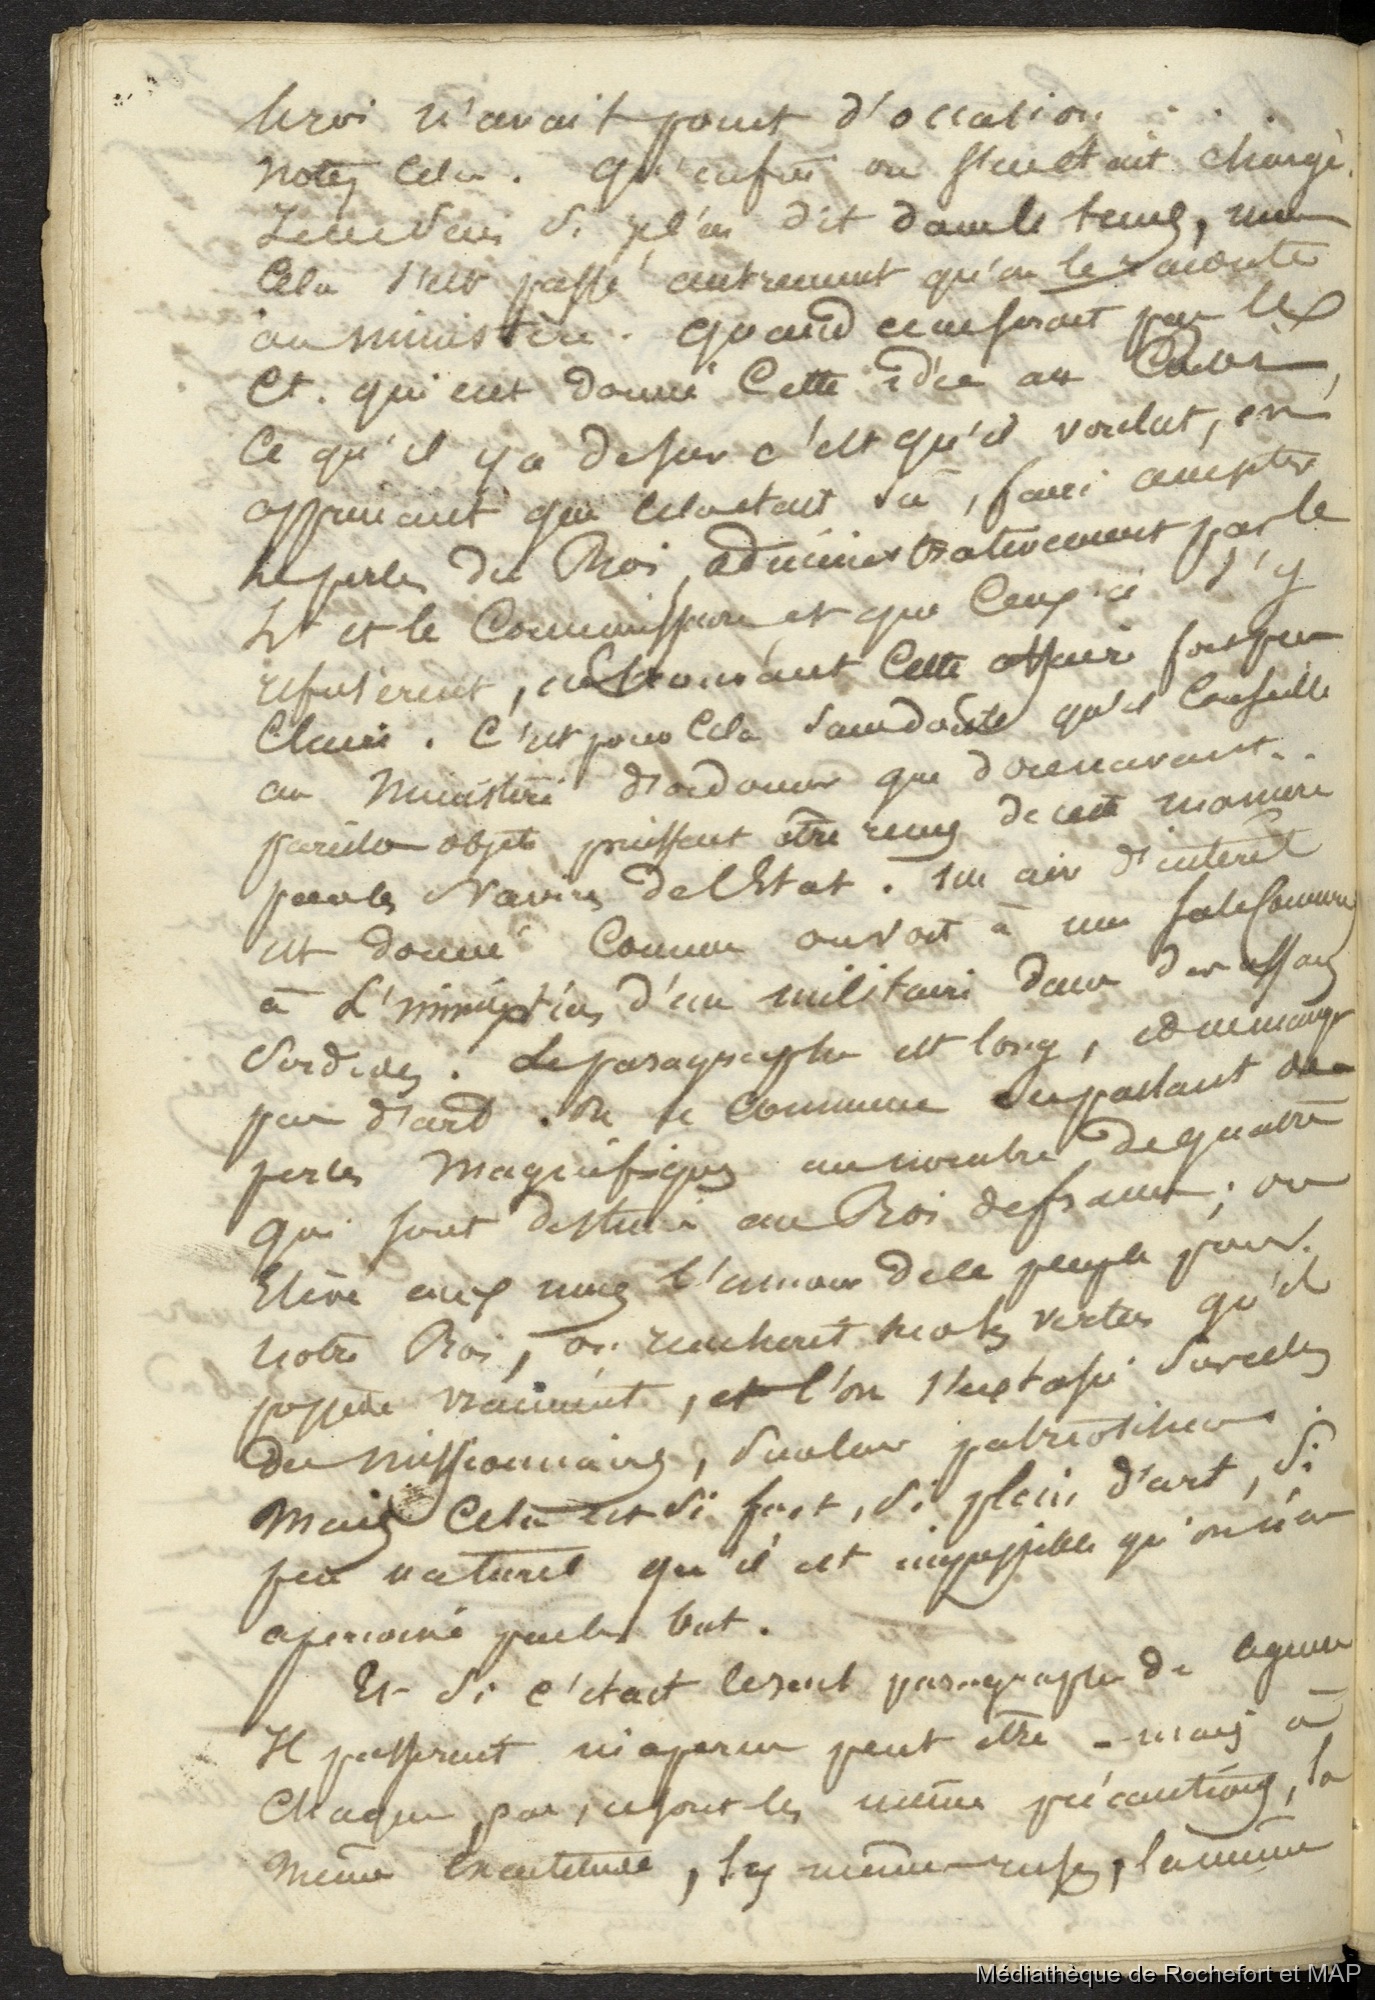 le roi n'avait point d'occasion . . .
Notez cela. Qu'enfin on s'en etait chargé.
si je l'ai dit dans le tems, mais
Cela s'est passé autrement qu'on le raconte
au ministère. Quand ce ne serait pas lui
Et. qui eut donné Cette idée au
Ce qu'il y a de sur c'est qu'il voulut, en
apprenant que cela etait su, faire accepter
les perles du Roi, administrativement par le
Lt et le Commissaire et que Ceux ci s'y
refuserent, en trouvant Cette affaire fort peu
Claire. C'est pour Cela sans doute qu'il Conseille
au Ministère d'ordonner que dorenavant . .
pareils objets puissent être reçus de cette maniere
par les Navires de l'Etat. Un air d'interêt
est donné Comme on voit à une sale
à L'ineptie d'un militaire dans des affaires
Sordides. Le paragraphe est long, et ne manque
pas d'art. On le Commence en parlant de
perles Magnifiques au nombre de quatre
qui sont destinés au Roi de france; on
Elève aux nues l'amour de ce peuple pour
notre Roi, on rencherit sur les vertus qu'il
possède vraiment, et l'on s'extasie sur celles
des Missionnaires, sur leur patriotisme.
Mais Cela est si fort, si plein d'art, si
peu naturel qu'il est impossible qu'on n'en
apercoive pas le but.
Et si c'etait le seul paragraphe de ce genre
Il passerait inaperçu peut être - mais à
Chaque pas, ce sont les même précautions, la
même exactitude, les même ruses, la même
Médiathèque de Rochefort et MAP